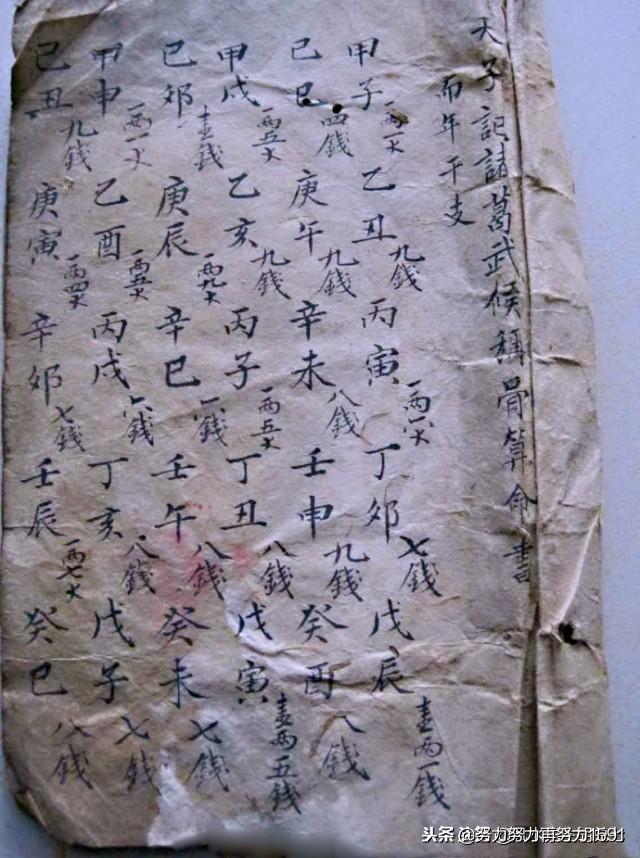 天子記諸葛武侯稱骨算命書
而年干支
甲子 一両一大 乙丑 九錢 丙寅 一両一大 丁卯 七錢 戊辰 壹両一錢
己巳 四錢 庚午 九錢 辛未 八錢 壬申 九錢 癸酉 八錢
甲戌 一両五大 乙亥 九錢 丙子 一両五大 丁丑 八錢 戊寅 壹両五錢
己卯 壹錢 庚辰 一両九大 辛巳 錢 壬午 八錢 癸未 七錢
甲申 一両一大 乙酉 一両五大 丙戌 錢 丁亥 八錢 戊子 七錢
己丑 九錢 庚寅 一両四大 辛卯 七錢 壬辰 一両七大 癸巳 八錢
头条 @努力努力再努力